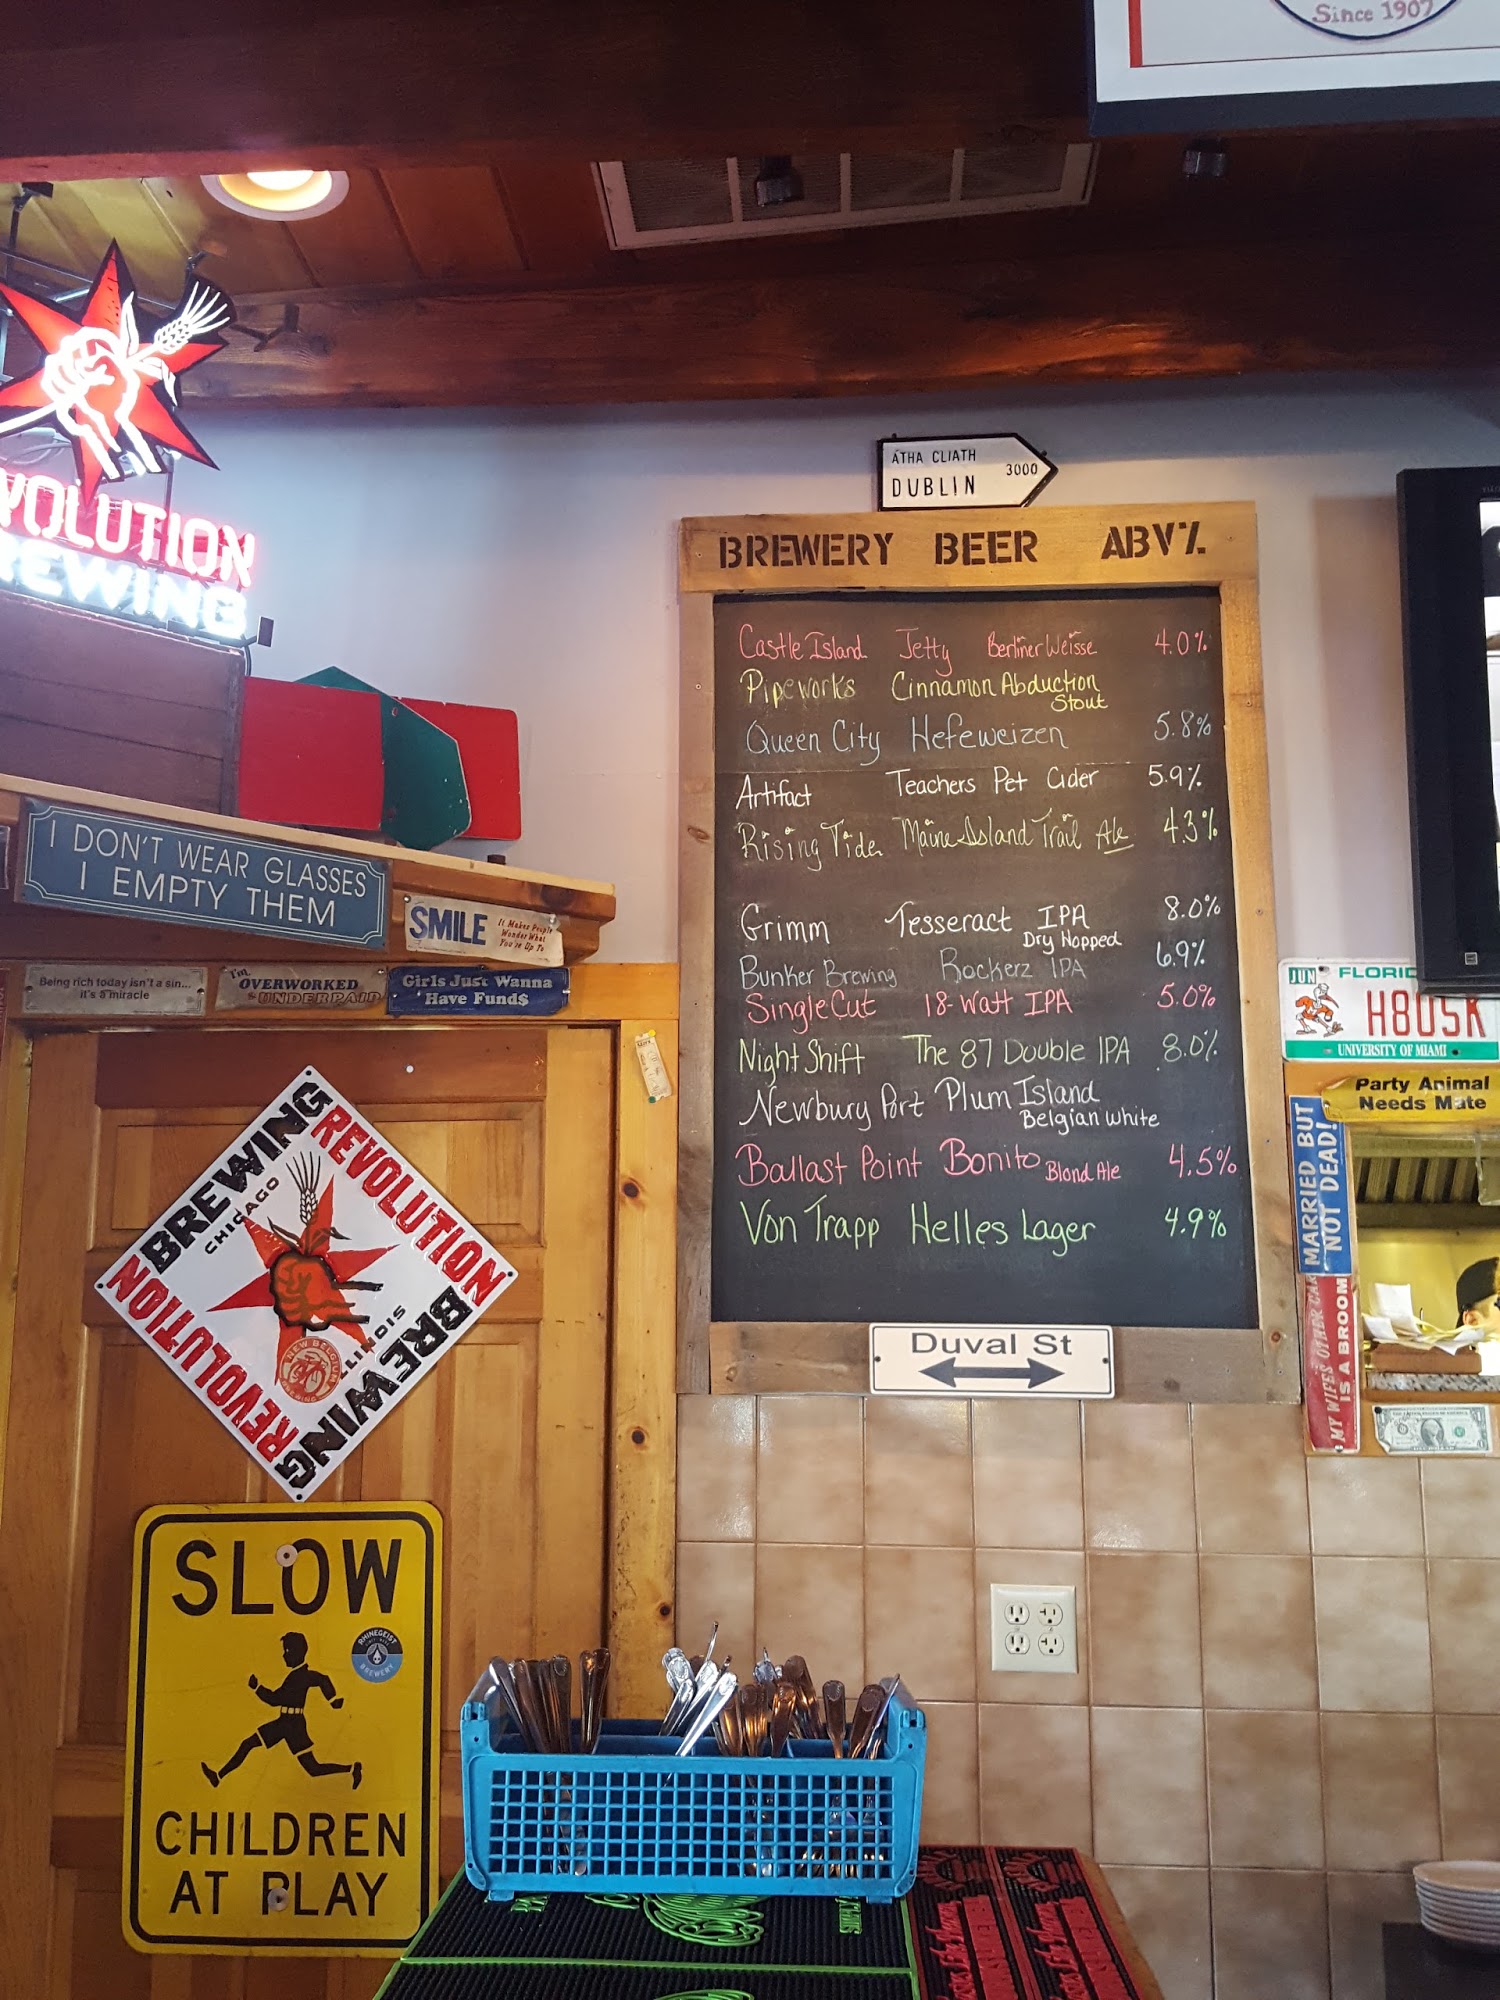 Since 1907
VOLUTION
EWING
ÁTHA CLIATH
DUBLIN
3000
BREWERY BEER ABV%
Castle Island Jetty Berliner Weisse 4.0%
Pipeworks Cinnamon Abduction
Stout
Queen City Hefeweizen 5.8%
Artifact Teachers Pet Cider 5.9%
Rising Tide Maine Island Trail Ale 4.3%
Grimm Tesseract IPA 8.0%
Dry Hopped
Bunker Brewing Rockerz IPA 6.9%
SingleCut 18-Watt IPA 5.0%
Night Shift The 87 Double IPA 8.0%
Newbury Port Plum Island
Belgian White
Ballast Point Bonito Blond Ale 4.5%
Von Trapp Helles Lager 4.9%
Duval St
I DON'T WEAR GLASSES
I EMPTY THEM
SMILE
It Makes People
Wonder What
You're Up To
Being rich today isn't a sin...
it's a miracle
I'm
OVERWORKED
& UNDERPAID
Girls Just Wanna
Have Fund$
BREWING
REVOLUTION
CHICAGO
ILLINOIS
REVOLUTION
BREWING
NEW BELGIUM
BREWING
SLOW
RHINEGEIST
BREWERY
CHILDREN
AT PLAY
JUN
FLORID
H8USK
UNIVERSITY OF MIAMI
Party Animal
Needs Mate
MARRIED BUT
NOT DEAD!
MY WIFES OTHER CAR
IS A BROOM